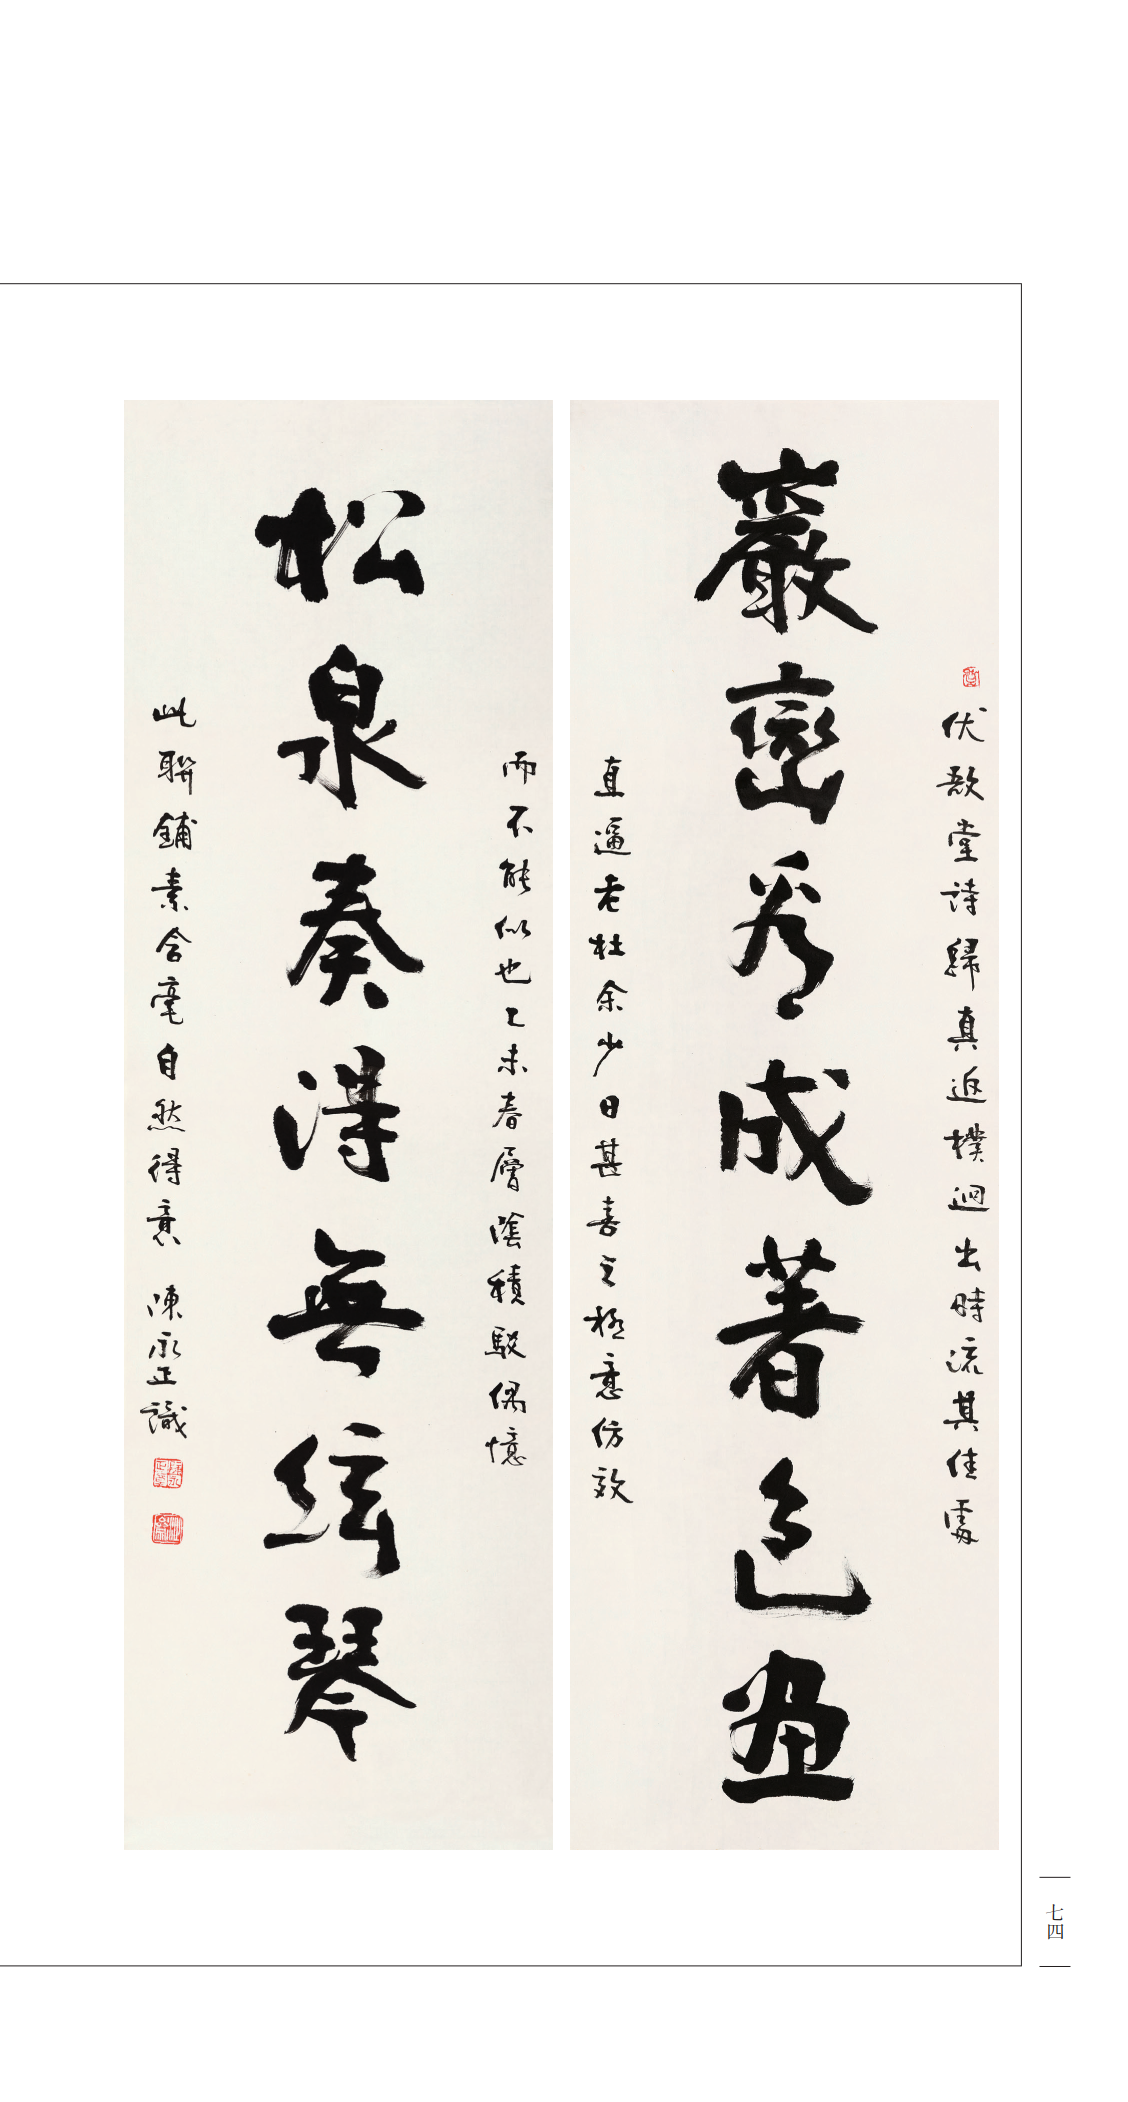 巖巒秀成著色畫
伏敔堂詩歸真返樸迥出時流其佳處
直逼老杜余少日甚喜之極意仿效
松泉奏得無絃琴
而不能似也乙未春層陰積駁偶憶
此聯鋪素含毫自然得意 陳永正識
七四